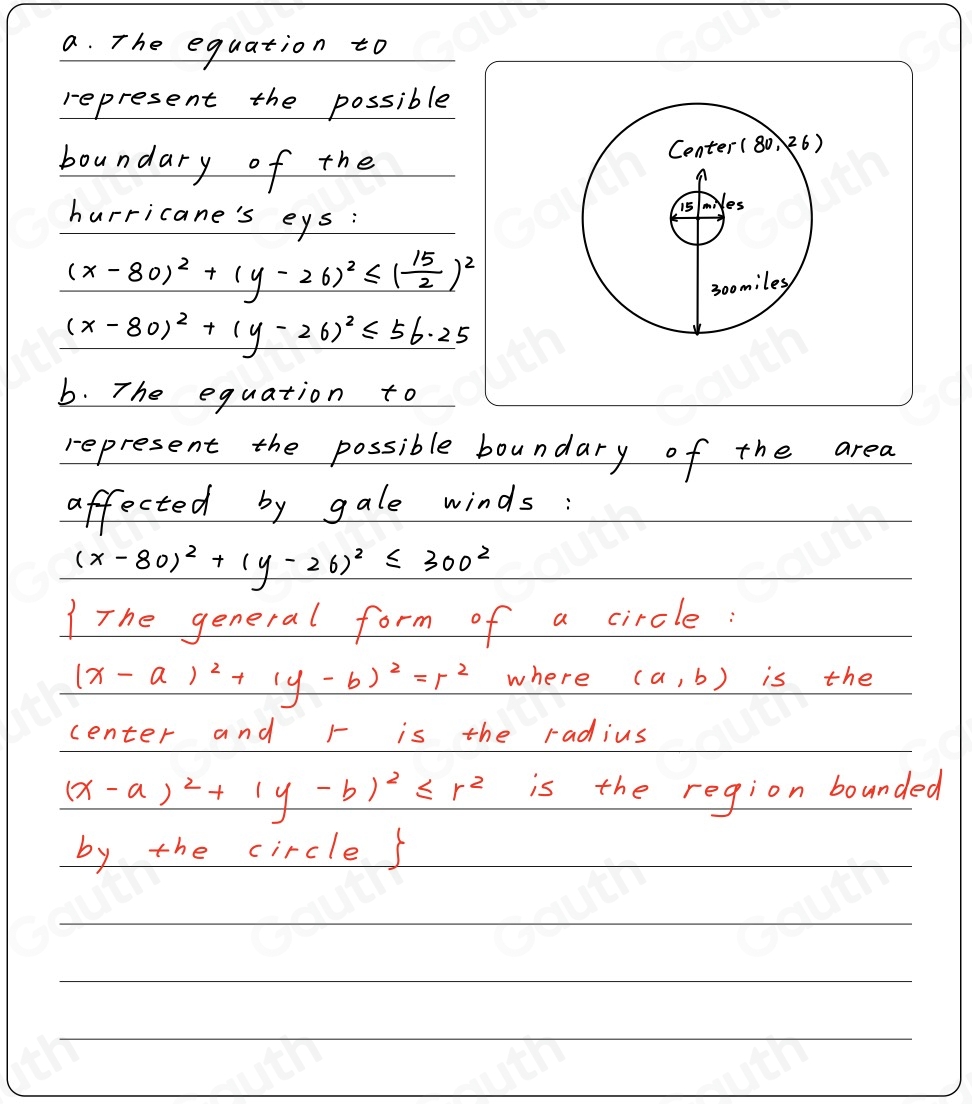 a. The equation to
represent the possible
boundary of the
hurricane's eys:
(x-80)² + (y-26)² ≤ (15/2)²
(x-80)² + (y-26)² ≤ 56.25
Center(80,26)
15 miles
300miles
b. The equation to
represent the possible boundary of the area
affected by gale winds:
(x-80)² + (y-26)² ≤ 300²
{The general form of a circle:
(x-a)² + (y-b)² = r² where (a,b) is the
center and r is the radius
(x-a)² + (y-b)² ≤ r² is the region bounded
by the circle}
Gauth